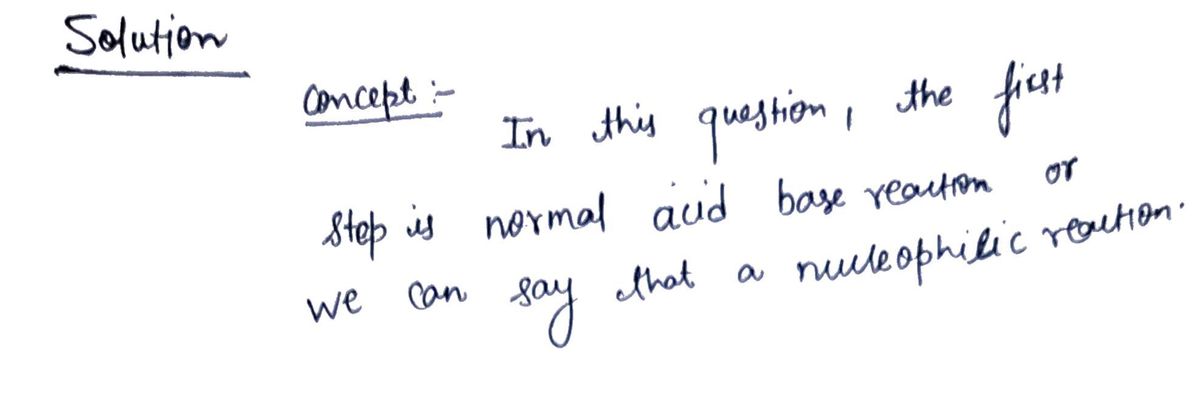 Solution
Concept :-
In this question, the first
step is normal acid base reaction or
we can say that a nucleophilic reaction.